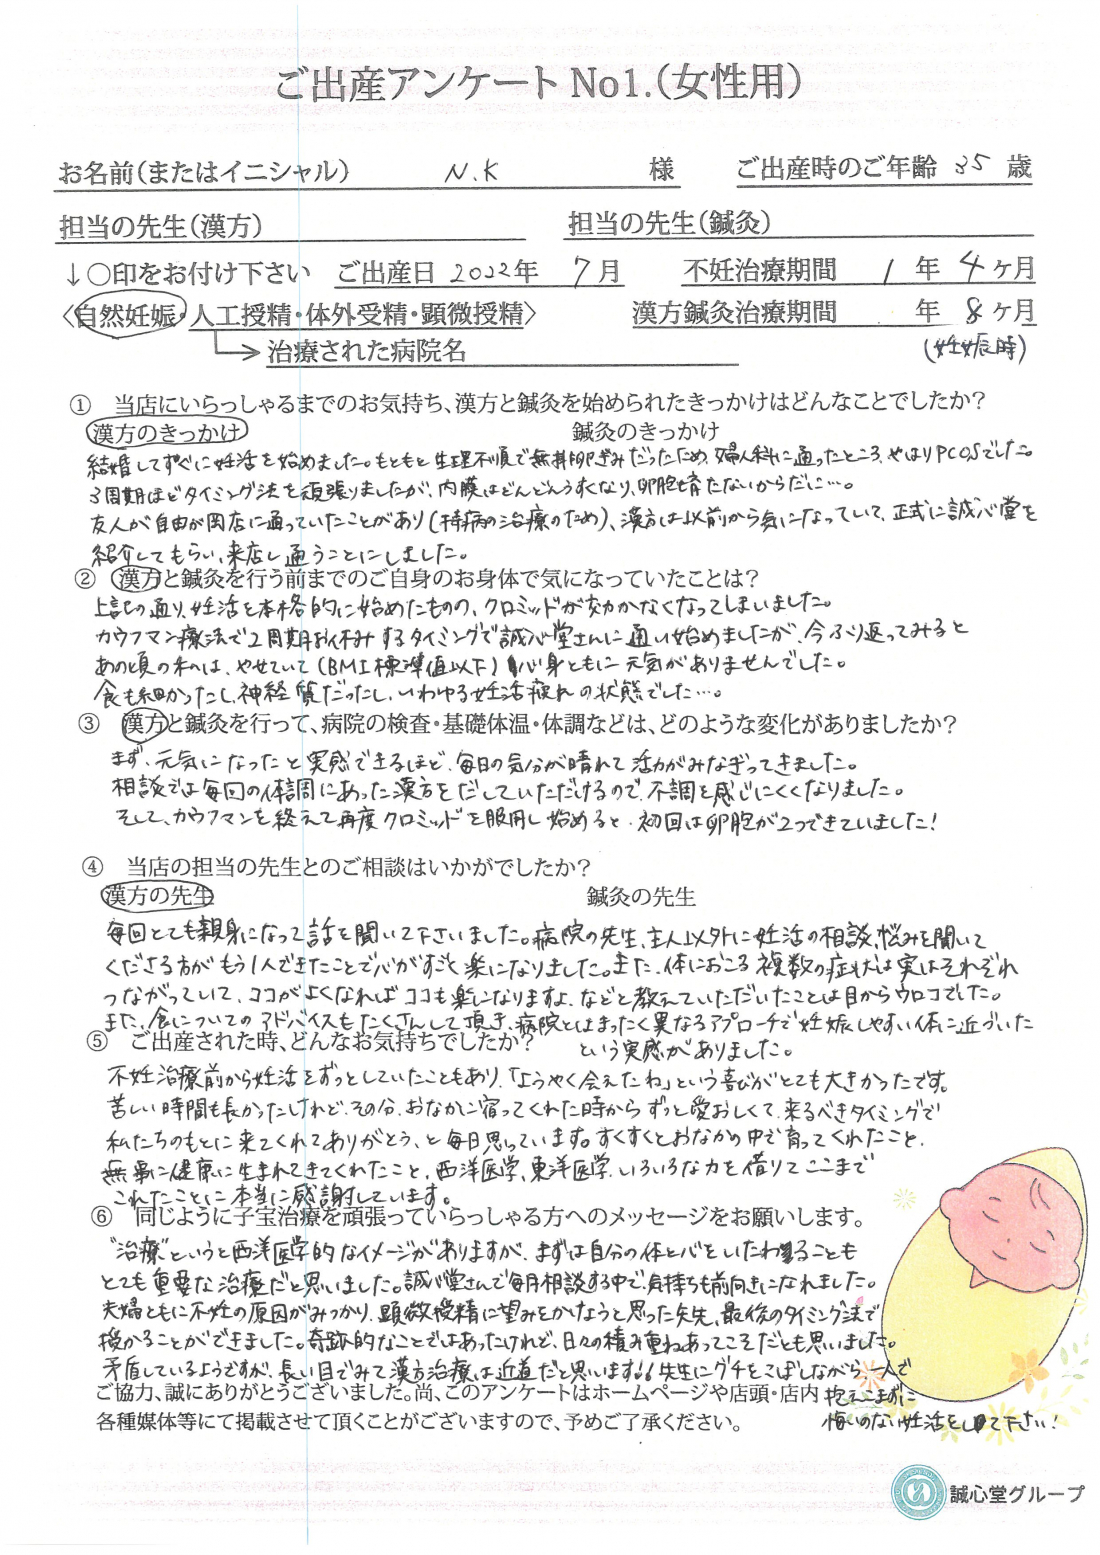 ご出産アンケートNo1.(女性用)
お名前(またはイニシャル) N.K 様 ご出産時のご年齢 35 歳
担当の先生(漢方) 担当の先生(鍼灸)
↓○印をお付け下さい ご出産日 2022年 7月 不妊治療期間 1年 4ヶ月
〈自然妊娠・人工授精・体外受精・顕微授精〉 漢方鍼灸治療期間 年 8ヶ月
治療された病院名 (妊娠時)
① 当店にいらっしゃるまでのお気持ち、漢方と鍼灸を始められたきっかけはどんなことでしたか?
漢方のきっかけ 鍼灸のきっかけ
結婚してすぐに妊活を始めました。もともと生理不順で無排卵ぎみだったため、婦人科に通ったところ、やはりPCOSでした。
3周期ほどタイミング法を頑張りましたが、内膜はどんどんうすくなり、卵胞も育たないからだに…。
友人が自由が岡店に通っていたことがあり(持病の治療のため)、漢方は以前から気になっていて、正式に誠心堂を
紹介してもらい、来店し通うことにしました。
② 漢方と鍼灸を行う前までのご自身のお身体で気になっていたことは?
上記の通り、妊活を本格的に始めたものの、クロミッドが効かなくなってしまいました。
カウフマン療法で2周期お休みするタイミングで誠心堂さんに通い始めましたが、今ふり返ってみると
あの頃の私は、やせていて(BMI標準値以下)心身ともに元気がありませんでした。
食も細かったし、神経質だったし、いわゆる妊活疲れの状態でした…。
③ 漢方と鍼灸を行って、病院の検査・基礎体温・体調などは、どのような変化がありましたか?
まず、元気になったと実感できるほど、毎日の気分が晴れて活力がみなぎってきました。
相談では毎回の体調にあった漢方をだしていただけるので、不調を感じにくくなりました。
そして、カウフマンを終えて再度クロミッドを服用し始めると、初回は卵胞が2つできていました!
④ 当店の担当の先生とのご相談はいかがでしたか?
漢方の先生 鍼灸の先生
毎回とても親身になって話を聞いて下さいました。病院の先生、主人以外に妊活の相談、悩みを聞いて
くださる方がもう1人できたことで心がすごく楽になりました。また、体におこる複数の症状は実はそれぞれ
つながっていて、ココがよくなればココも楽になりますよ、などと教えていただいたことは目からウロコでした。
また、食についてのアドバイスもたくさんして頂き、病院とはまったく異なるアプローチで妊娠しやすい体に近づいた
という実感がありました。
⑤ ご出産された時、どんなお気持ちでしたか?
不妊治療前から妊活をずっとしていたこともあり、「ようやく会えたね」という喜びがとても大きかったです。
苦しい時間も長かったけれど、その分、おなかに宿ってくれた時からずっと愛おしくて、来るべきタイミングで
私たちのもとに来てくれてありがとう、と毎日思っています。すくすくとおなかの中で育ってくれたこと、
無事に健康に生まれてきてくれたこと、西洋医学、東洋医学、いろいろな力を借りてここまで
これたことに本当に感謝しています。
⑥ 同じように子宝治療を頑張っていらっしゃる方へのメッセージをお願いします。
"治療"というと西洋医学的なイメージがありますが、まずは自分の体と心をいたわることも
とても重要な治療だと思いました。誠心堂さんで毎月相談する中で、気持ちも前向きになれました。
夫婦ともに不妊の原因がみつかり、顕微授精に望みをかけようと思った矢先、最後のタイミング法で
授かることができました。奇跡的なことではあったけれど、日々の積み重ねあってこそだとも思いました。
矛盾しているようですが、長い目でみて漢方治療は近道だと思います!!先生にグチをこぼしながら一人で
抱えこまずに
悔いのない妊活をして下さい!
ご協力、誠にありがとうございました。尚、このアンケートはホームページや店頭・店内
各種媒体等にて掲載させて頂くことがございますので、予めご了承ください。
誠心堂グループ